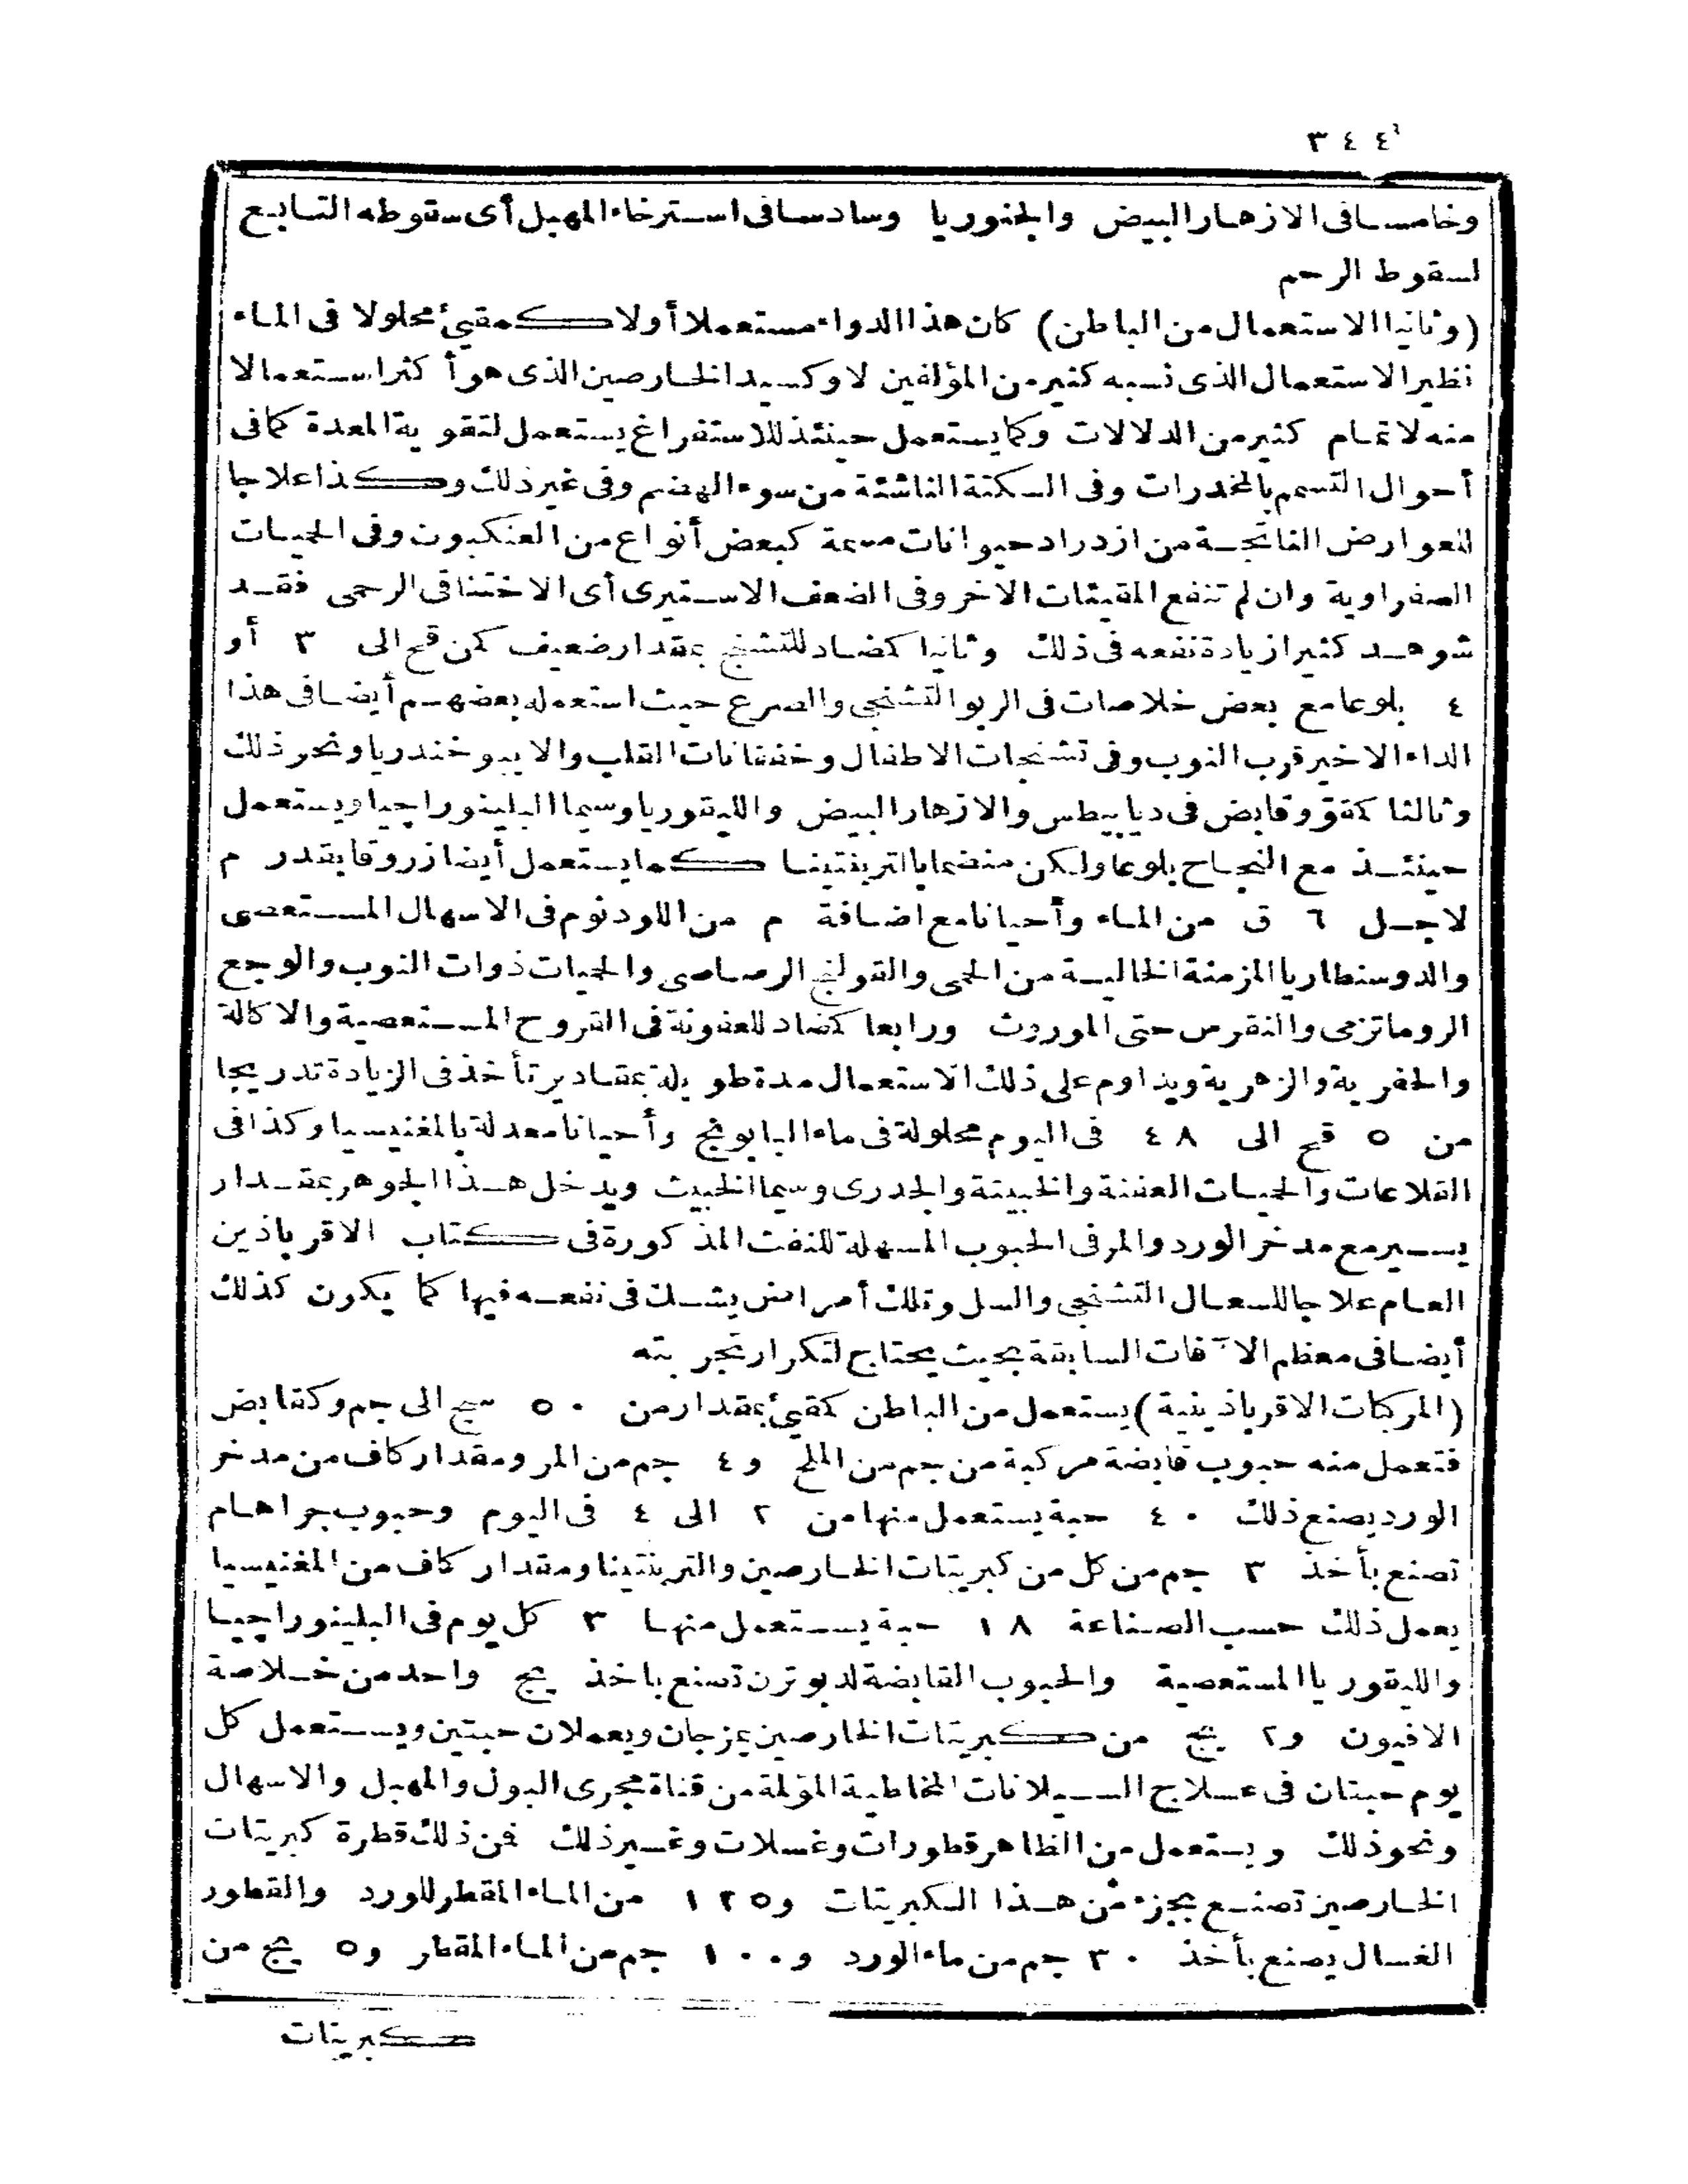 ٣٤٤
وخامسا فى الازهار البيض والجنوريا وسادسا فى استرخاء المهبل أى سقوطه التابع
لسقوط الرحم
(وثانيا الاستعمال من الباطن) كان هذا الدواء مستعملا أولا كمقيئ محلولا فى الماء
نظير الاستعمال الذى نسبه كثير من المؤلفين لاوكسيد الخارصين الذى هو أكثر استعمالا
منه لاتمام كثير من الدلالات وكما يستعمل حينئذ للاستفراغ يستعمل لتقوية المعدة كما فى
أحوال التسمم بالمخدرات وفى السكتة الناشئة من سوء الهضم وفى غير ذلك وكذا علاجا
للعوارض الناتجة من ازدراد حيوانات مسمة كبعض أنواع من العنكبوت وفى الحميات
الصفراوية وان لم تنفع المقيئات الاخر وفى الضعف الاستيرى أى الاختناقى الرحمى فقد
شوهد كثيرا زيادة نفعه فى ذلك وثانيا كمضاد للتشنج بمقدار ضعيف كمن قمح الى ٣ أو
٤ بلوعا مع بعض خلاصات فى الربو التشنجى والصرع حيث استعمله بعضهم أيضا فى هذا
الداء الاخير قرب النوب وفى تشنجات الاطفال وخفقانات القلب والايبوخندريا ونحو ذلك
وثالثا كمقو وقابض فى ديابيطس والازهار البيض والليقوريا وسيما البلينوراجيا ويستعمل
حينئذ مع النجاح بلوعا ولكن منضما بالتربنتينا كما يستعمل أيضا زروقا بقدر م
لاجل ٦ ق من الماء وأحيانا مع اضافة م من اللاودنوم فى الاسهال المستعصى
والدوسنطاريا المزمنة الخالية من الحمى والقولنج الرصاصى والحميات ذوات النوب والوجع
الروماتزمى والنقرس حتى الموروث ورابعا كمضاد للعفونة فى القروح المستعصية والاكالة
والحفرية والزهرية ويداوم على ذلك الاستعمال مدة طويلة بمقادير تأخذ فى الزيادة تدريجا
من ٥ قمح الى ٤٨ فى اليوم محلولة فى ماء البابونج وأحيانا معدلة بالمغنيسيا وكذا فى
القلاعات والحميات العفنة والخبيثة والجدرى وسيما الخبيث ويدخل هذا الجوهر بمقدار
يسير مع مدخر الورد والمر فى الحبوب المسهلة للنفث المذكورة فى كتاب الاقرباذين
العام علاجا للسعال التشنجى والسل وتلك أمراض يشك فى نفعه فيها كما يكون كذلك
أيضا فى معظم الآفات السابقة بحيث يحتاج لتكرار تجربته
(المركبات الاقرباذينية) يستعمل من الباطن كمقيئ بمقدار من ٥٠ سج الى جم وكقابض
فتعمل منه حبوب قابضة مركبة من جم من الملح و٤ جم من المر ومقدار كاف من مدخر
الورد يصنع ذلك ٤٠ حبة يستعمل منها من ٢ الى ٤ فى اليوم وحبوب جراهام
تصنع بأخذ ٣ جم من كل من كبريتات الخارصين والتربنتينا ومقدار كاف من المغنيسيا
يعمل ذلك حسب الصناعة ١٨ حبة يستعمل منها ٣ كل يوم فى البلينوراجيا
والليقوريا المستعصية والحبوب القابضة لدبوترن تصنع باخذ يج واحد من خلاصة
الافيون و٢ يج من كبريتات الخارصين يمزجان ويعملان حبتين ويستعمل كل
يوم حبتان فى علاج السيلانات المخاطية المؤلمة من قناة مجرى البول والمهبل والاسهال
ونحو ذلك ويستعمل من الظاهر قطورات وغسلات وغير ذلك فمن ذلك قطرة كبريتات
الخارصين تصنع بجزء من هذا الكبريتات و١٢٥ من الماء المقطر للورد والقطور
الغسال يصنع بأخذ ٣٠ جم من ماء الورد و١٠٠ جم من الماء المقطر و٥ يج من
كبريتات